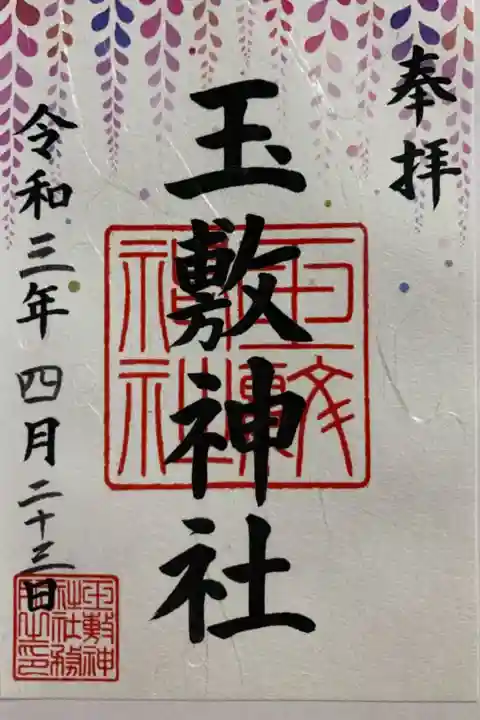 奉拝
玉敷神社
令和三年四月二十三日
玉敷神社
玉敷神社社務所之印